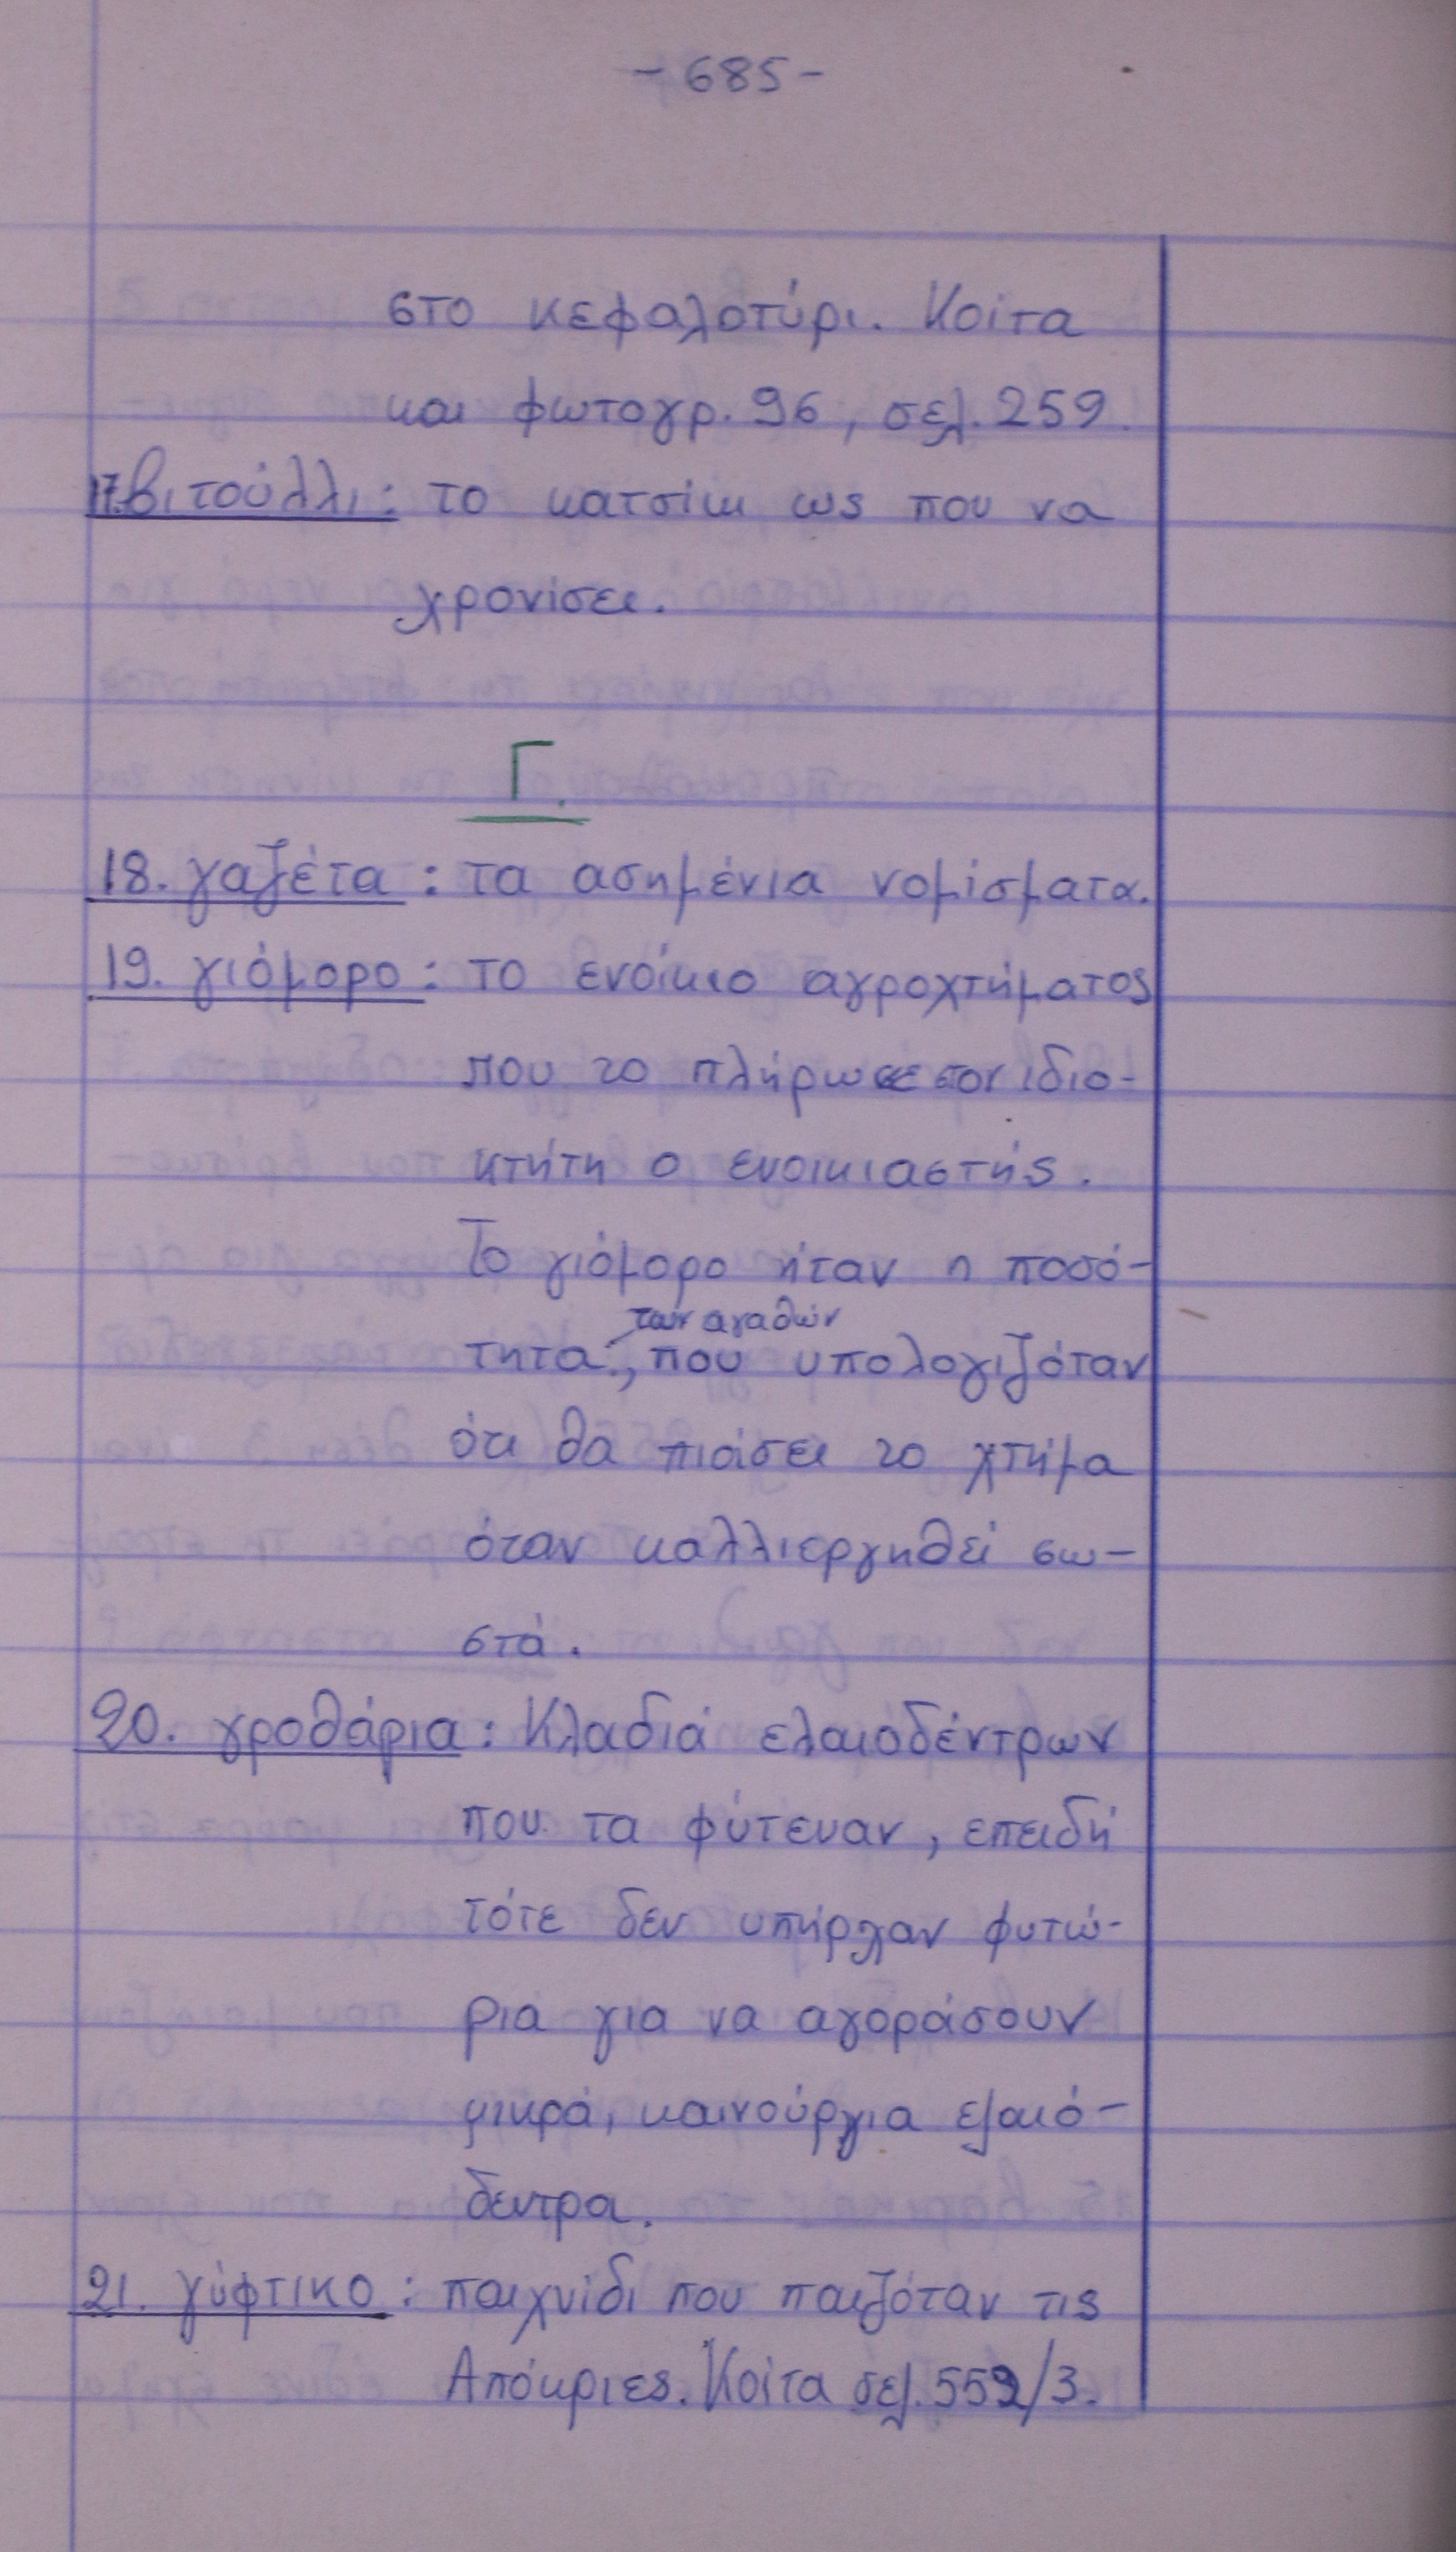 - 685 -
στο κεφαλοτύρι. Κοίτα
και φωτογρ. 96, σελ. 259.
17. βιτούλλι: το κατσίκι ως που να
χρονίσει.
Γ.
18. γαζέτα: τα ασημένια νομίσματα.
19. γιόμορο: το ενοίκιο αγροχτήματος
που το πλήρωσε στον ιδιο-
κτήτη ο ενοικιαστής.
Το γιόμορο ήταν η ποσό-
των αγαθών
τητα, που υπολογιζόταν
ότι θα πιάσει το χτήμα
όταν καλλιεργηθεί σω-
στά.
20. γροθάρια: Κλαδιά ελαιοδέντρων
που τα φύτευαν, επειδή
τότε δεν υπήρχαν φυτώ-
ρια για να αγοράσουν
μικρά, καινούργια ελαιό-
δεντρα.
21. γύφτικο: παιχνίδι που παιζόταν τις
Απόκριες. Κοίτα σελ. 552/3.